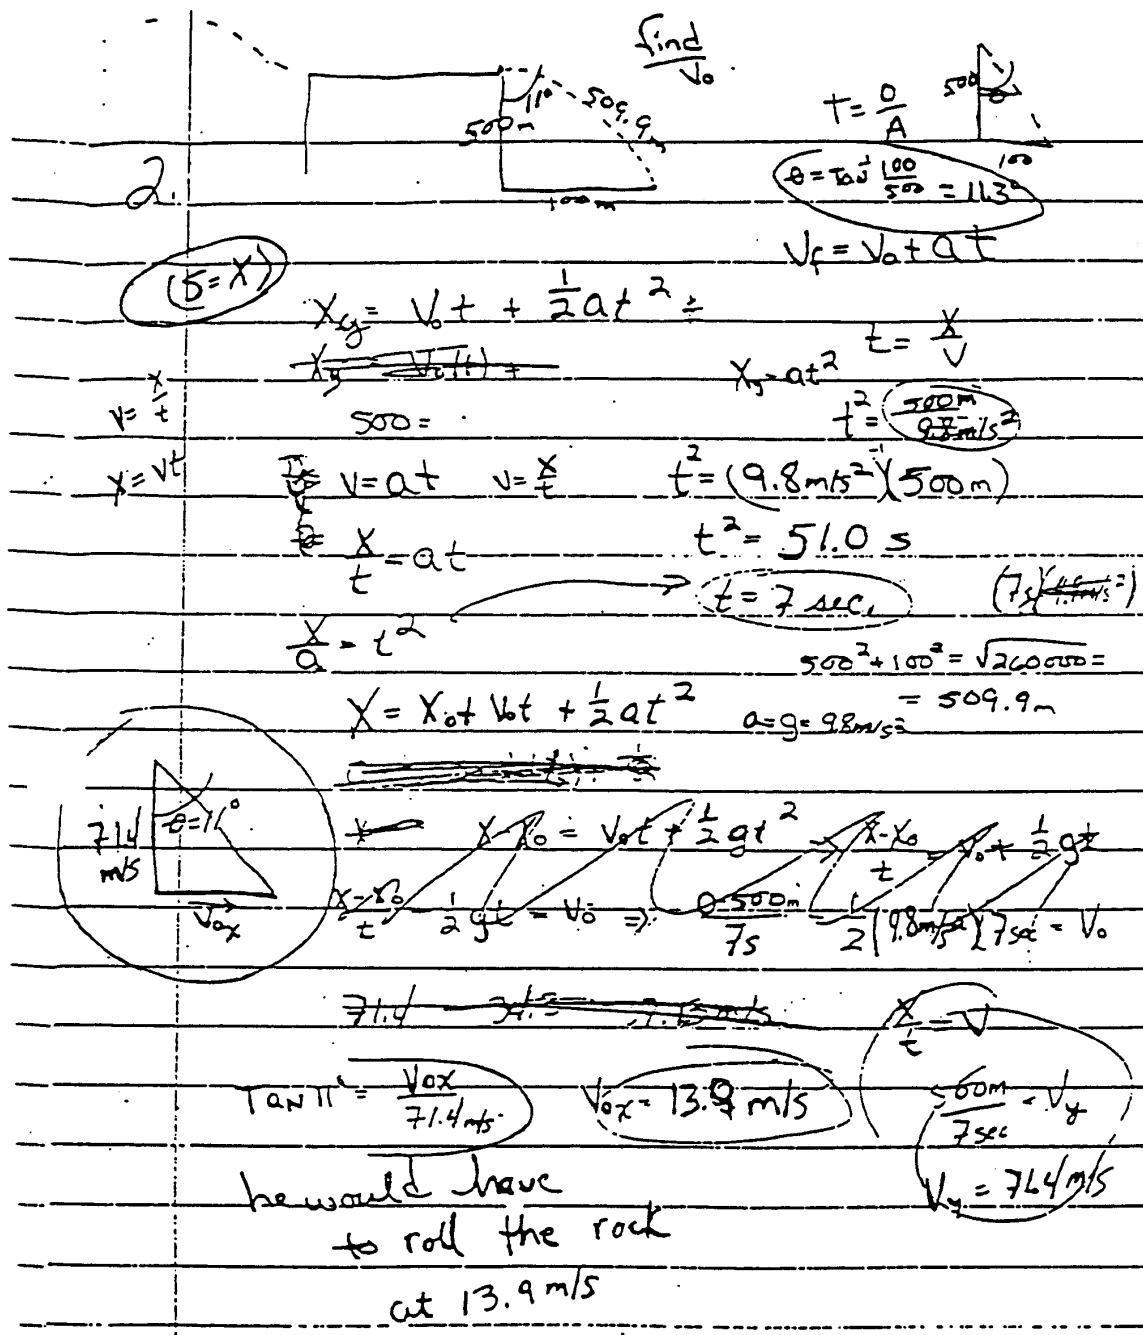 find
V₀
11°
500m
509.9
100 m
T = O/A
500
θ
100
θ = Tan⁻¹ 100/500 = 11.3°
2.
V_f = V₀ + at
(S = X)
X_y = V₀t + ½at² =
t = X/V
X_y = at²
V = X/t
500 =
t² = 500m / 9.8m/s²
X = Vt
V = at V = X/t
t² = (9.8m/s²)⁻¹(500m)
X/t = at
t² = 51.0 s
t = 7 sec.
(7s)
X/a = t²
500² + 100² = √260000 =
= 509.9m
X = X₀ + V₀t + ½at²
a = g = 9.8m/s²
71.4 m/s
θ = 11°
V₀x
X - X₀ = V₀t + ½gt² → X - X₀/t = V₀ + ½gt
X - X₀/t - ½gt = V₀ ⇒ 0-500m/7s - ½(9.8m/s²)(7sec = V₀
71.4
X/t = V
Tan 11° = V₀x / 71.4 m/s
V₀x = 13.9 m/s
500m/7sec = V_y
V_y = 71.4 m/s
he would have
to roll the rock
at 13.9 m/s